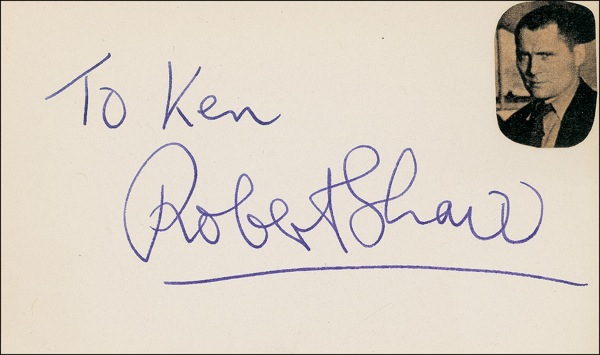 To Ken
Robert Shaw